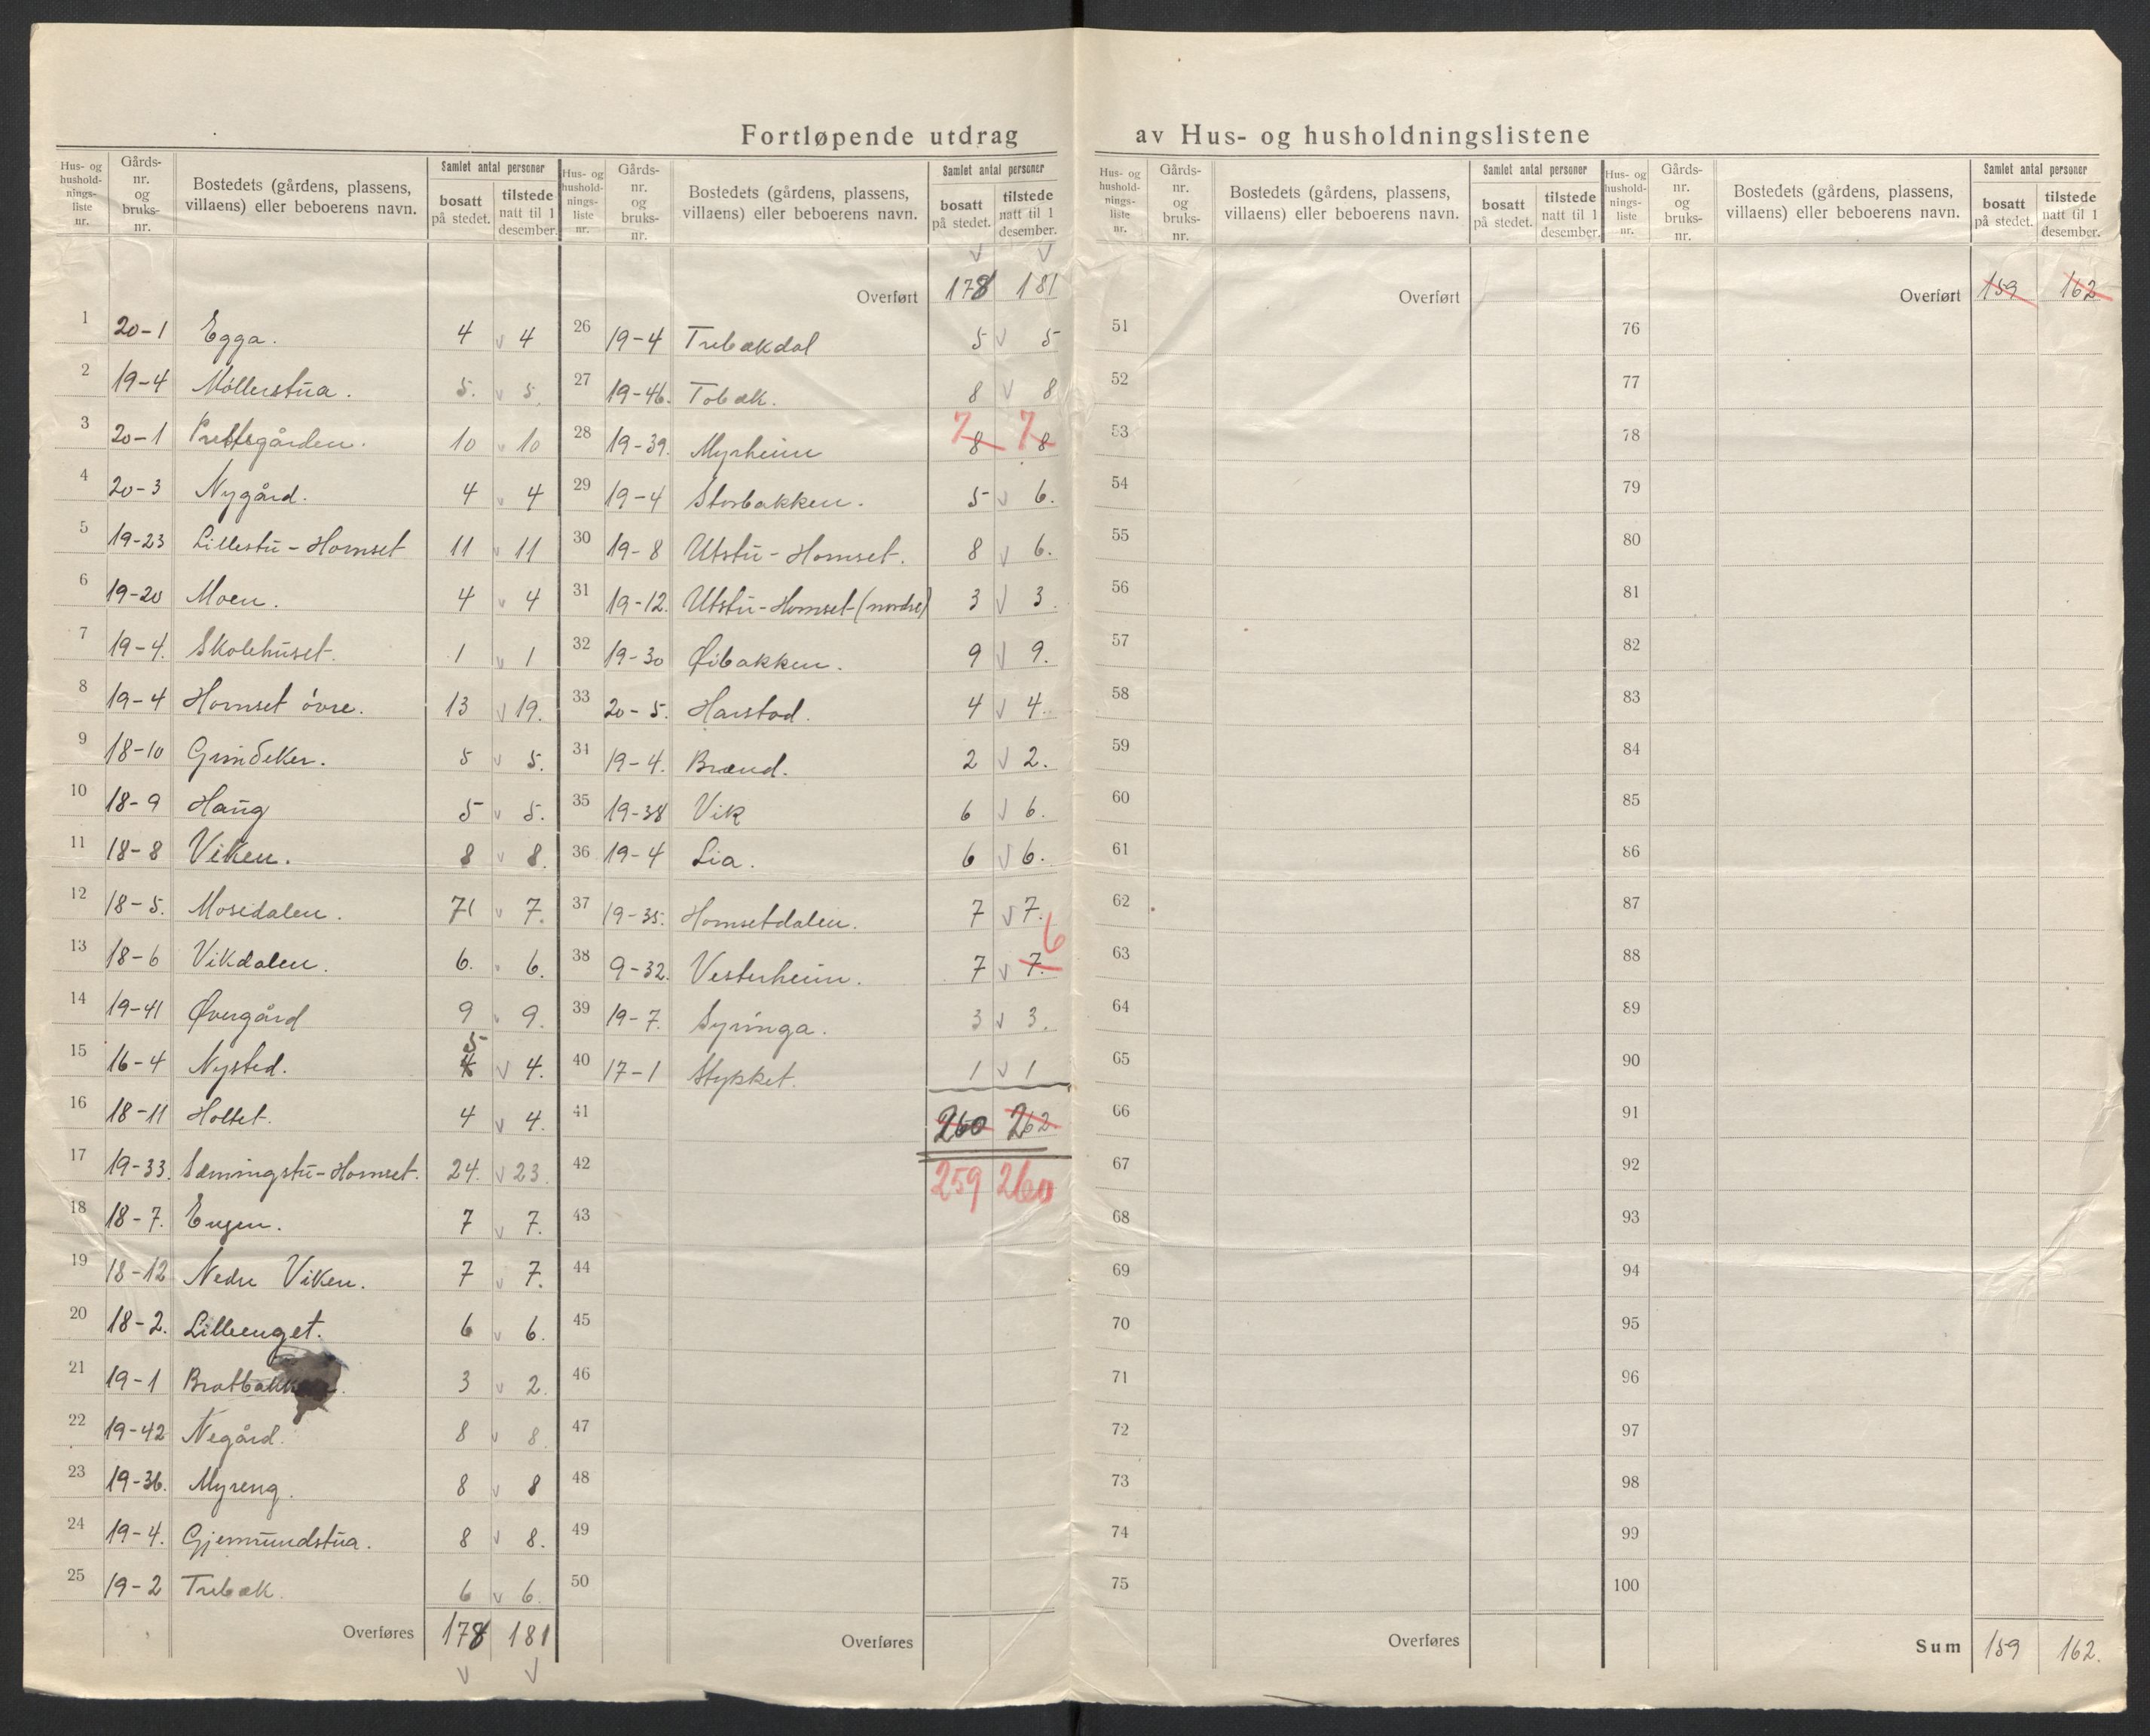 Fortløpende utdrag av Hus- og husholdningslistene
Hus- og hushold-nings-liste nr. Gårds-nr. og bruks-nr. Bostedets (gårdens, plassens, villaens) eller beboerens navn. Samlet antal personer bosatt på stedet. tilstede natt til 1 desember.
1 20-1 Egga. 4 v 4
2 19-4 Möllerstua. 5. v 5.
3 20-1 Prestegården. 10 v 10
4 20-3 Nygård. 4 v 4
5 19-23 Lillestu-Hornset 11 v 11
6 19-20 Moen. 4 v 4
7 19-4. Skolehuset. 1 v 1
8 19-4 Hornset övre. 13 v 19.
9 18-10 Grindeker. 5 v 5.
10 18-9 Haug 5 v 5.
11 18-8 Viken. 8 v 8.
12 18-5. Mosedalen. 7 v 7.
13 18-6 Vikdalen. 6. 6.
14 19-41 Øvergård 9 9.
15 16-4 Nysted. 4 5 v 4.
16 18-11 Holtet. 4 v 4.
17 19-33. Sæmingstu-Hornset. 24. v 23.
18 18-7. Engen. 7 v 7.
19 18-12 Nedre Viken. 7 v 7.
20 18-2. Lilleenget. 6 v 6.
21 19-1 Bratbakken. 3 v 2.
22 19-42 Negård. 8 v 8.
23 19-36. Myreng. 8 v 8
24 19-4. Gjermundstua. 8 v 8.
25 19-2 Trebæk. 6 v 6.
Overføres 178 181
v v
Hus- og hushold-nings-liste nr. Gårds-nr. og bruks-nr. Bostedets (gårdens, plassens, villaens) eller beboerens navn. Samlet antal personer bosatt på stedet. tilstede natt til 1 desember.
v v
Overført 178 181
26 19-4 Trebækdal 5 v 5
27 19-46. Tobæk. 8 v 8
28 19-39. Myrheim 7 8 7 8
29 19-4 Storbakken. 5 v 6.
30 19-8 Utstu-Hornset. 8 v 6.
31 19-12. Utstu-Hornset (nordre) 3 v 3.
32 19-30 Øibakken. 9 v 9.
33 20-5. Harstad. 4 v 4.
34 19-4. Brænd. 2 v 2.
35 19-38 Vik 6 v 6.
36 19-4 Lia. 6 v 6.
37 19-35. Hornsetdalen. 7 v 7.
38 9-32. Vesterheim. 7 v 7. 6
39 19-7. Syringa. 3 v 3.
40 17-1 Stykket. 1 v 1
41 260 262
42 259 260
43
44
45
46
47
48
49
50
Overføres
Hus- og hushold-nings-liste nr. Gårds-nr. og bruks-nr. Bostedets (gårdens, plassens, villaens) eller beboerens navn. Samlet antal personer bosatt på stedet. tilstede natt til 1 desember.
Overført
51
52
53
54
55
56
57
58
59
60
61
62
63
64
65
66
67
68
69
70
71
72
73
74
75
Overføres
Hus- og hushold-nings-liste nr. Gårds-nr. og bruks-nr. Bostedets (gårdens, plassens, villaens) eller beboerens navn. Samlet antal personer bosatt på stedet. tilstede natt til 1 desember.
Overført 159 162
76
77
78
79
80
81
82
83
84
85
86
87
88
89
90
91
92
93
94
95
96
97
98
99
100
Sum 159 162.